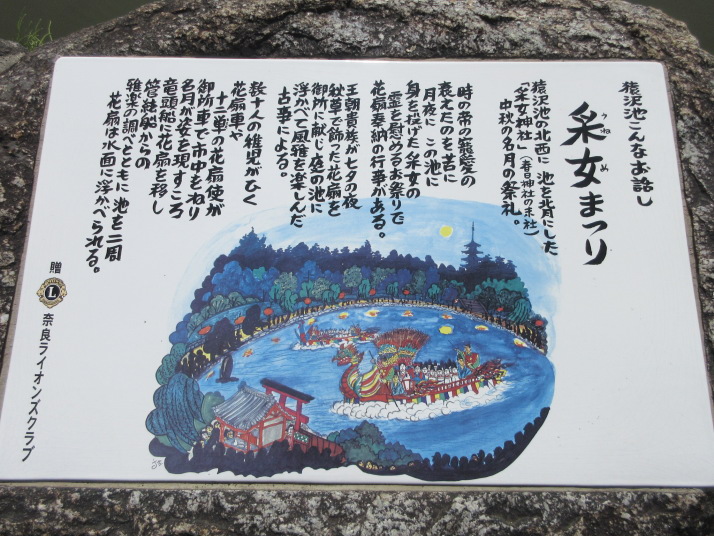 猿沢池こんなお話し
采女まつり
うねめ
猿沢池の北西に 池を背にした
「采女神社」(春日神社の末社)
中秋の名月の祭礼。
時の帝の寵愛の
衰えたのを苦に
月夜に この池に
身を投げた采女の
霊を慰めるお祭りで
花扇奉納の行事がある。
王朝貴族が七夕の夜
秋草で飾った花扇を
御所に献じ庭の池に
浮かべて風雅を楽しんだ
古事による。
数十人の稚児がひく
花扇車や
十二単の花扇使が
御所車で市中をねり
名月が姿を現すころ
竜頭船に花扇を移し
管絃船からの
雅楽の調べとともに 池を二周
花扇は水面に浮かべられる。
贈
L
奈良ライオンズクラブ